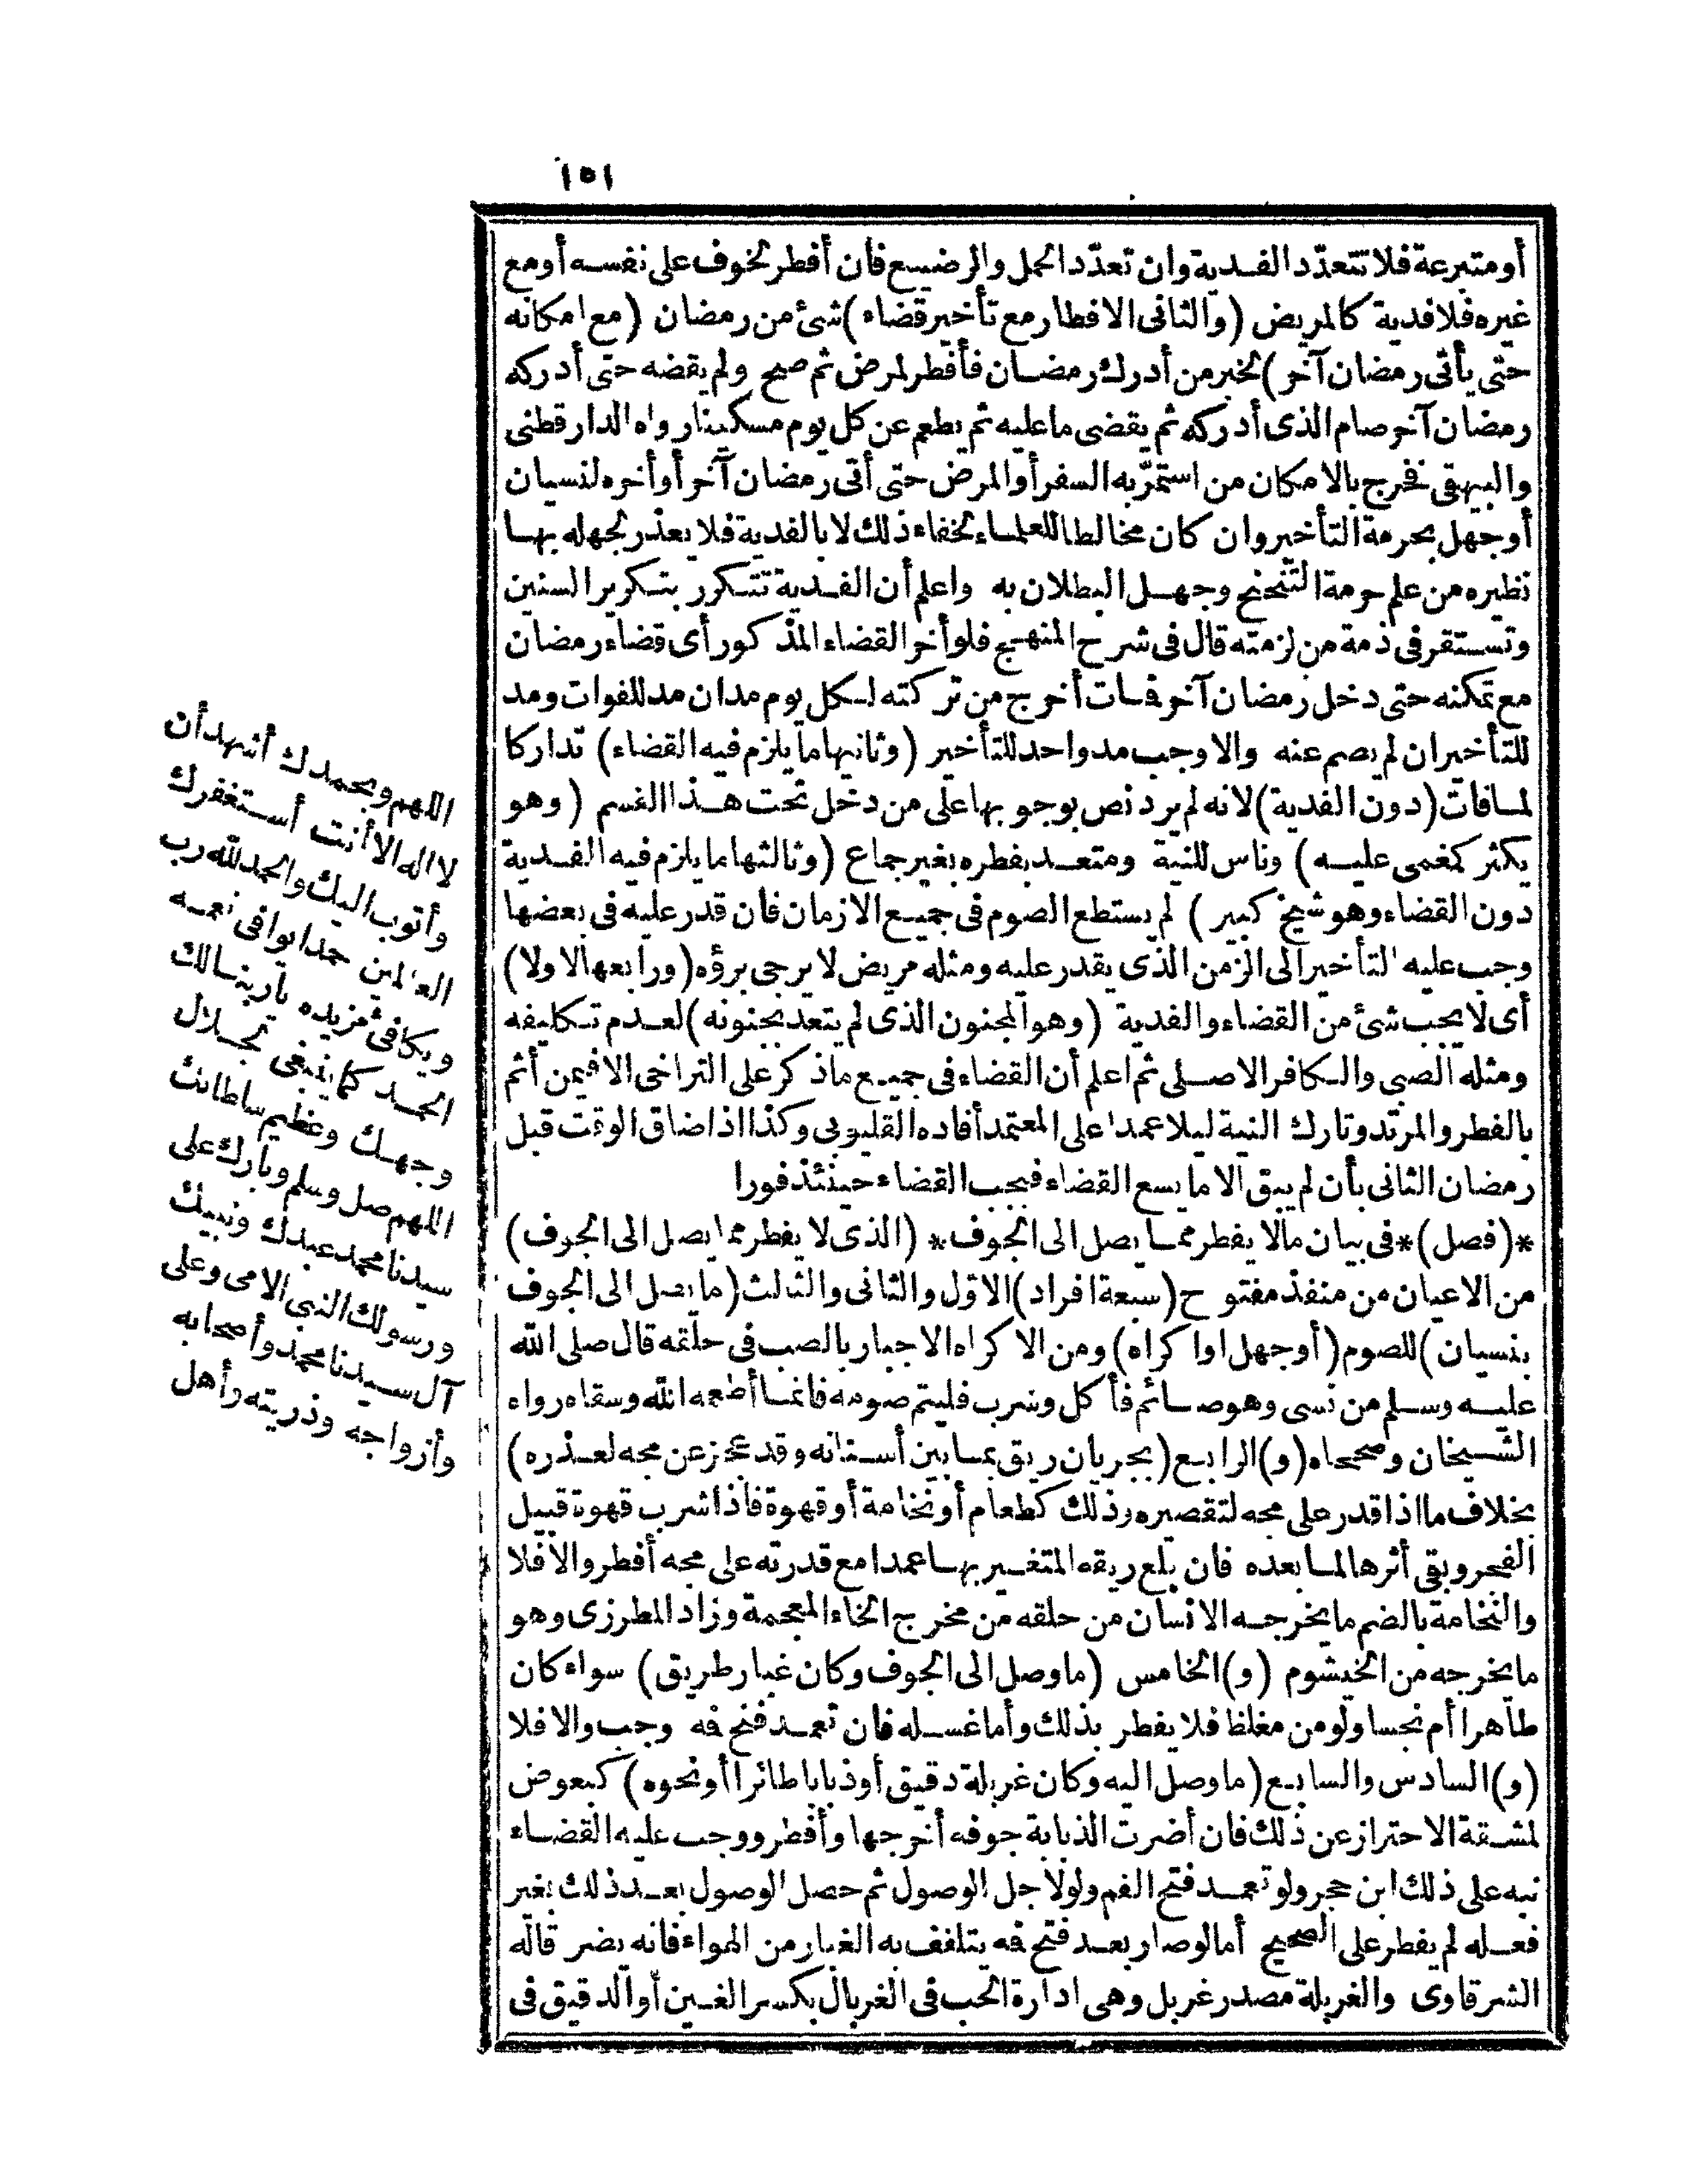 ١٥١
أو متبرعة فلا تتعدّد الفدية وان تعدّد الحمل والرضيع فان أفطر لخوف على نفسه أو مع
غيره فلا فدية كالمريض (والثانى الافطار مع تأخير قضاء) شئ من رمضان (مع امكانه
حتى يأتى رمضان آخر) لخبر من أدرك رمضان فأفطر لمرض ثم صح ولم يقضه حتى أدركه
رمضان آخر صام الذى أدركه ثم يقضى ما عليه ثم يطعم عن كل يوم مسكينا رواه الدارقطنى
والبيهقى فخرج بالامكان من استمرّ به السفر أو المرض حتى أتى رمضان آخر أو أخره لنسيان
أو جهل بحرمة التأخير وان كان مخالطا للعلماء لخفاء ذلك لا بالفدية فلا يعذر لجهله بها
نظيره من علم حرمة التنحنح وجهل البطلان به واعلم أن الفدية تتكرر بتكرير السنين
وتستقر فى ذمة من لزمته قال فى شرح المنهج فلو أخر القضاء المذكور أى قضاء رمضان
مع تمكنه حتى دخل رمضان آخر فات أخرج من تركته لكل يوم مدان مد للفوات ومد
للتأخير ان لم يصم عنه والا وجب مد واحد للتأخير (وثانيها ما يلزم فيه القضاء) تداركا
لما فات (دون الفدية) لانه لم يرد نص بوجوبها على من دخل تحت هذا القسم (وهو
يكثر كمغمى عليه) وناس للنية ومتعد بفطره بغير جماع (وثالثها ما يلزم فيه الفدية
دون القضاء وهو شيخ كبير) لم يستطع الصوم فى جميع الازمان فان قدر عليه فى بعضها
وجب عليه التأخير الى الزمن الذى يقدر عليه ومثله مريض لا يرجى برؤه (ورابعها لا ولا)
أى لا يجب شئ من القضاء والفدية (وهو المجنون الذى لم يتعد بجنونه) لعدم تكليفه
ومثله الصبى والكافر الاصلى ثم اعلم أن القضاء فى جميع ما ذكر على التراخى الا فيمن أثم
بالفطر والمرتد وتارك النية ليلا عمدا على المعتمد أفاده القليوبى وكذا اذا ضاق الوقت قبل
رمضان الثانى بأن لم يبق الا ما يسع القضاء فيجب القضاء حينئذ فورا
*(فصل)* فى بيان ما لا يفطر مما يصل الى الجوف* (الذى لا يفطر مما يصل الى الجوف)
من الاعيان من منفذ مفتوح (سبعة افراد) الاوّل والثانى والثالث (ما يصل الى الجوف
بنسيان) للصوم (أو جهل او اكراه) ومن الاكراه الاجبار بالصب فى حلقه قال صلى الله
عليه وسلم من نسى وهو صائم فأكل وشرب فليتم صومه فانما أطعمه الله وسقاه رواه
الشيخان وصححاه (و) الرابع (بجريان ريق بما بين أسنانه وقد عجز عن مجه لعذره)
بخلاف ما اذا قدر على مجه لتقصيره وذلك كطعام أو نخامة أو قهوة فاذا شرب قهوة قبيل
الفجر وبقى أثرها لما بعده فان بلع ريقه المتغير بها عمدا مع قدرته على مجه أفطر والا فلا
والنخامة بالضم ما يخرجه الانسان من حلقه من مخرج الخاء المعجمة وزاد المطرزى وهو
ما يخرجه من الخيشوم (و) الخامس (ما وصل الى الجوف وكان غبار طريق) سواء كان
طاهرا أم نجسا ولو من مغلظ فلا يفطر بذلك وأما غسله فان تعمد فتح فمه وجب والا فلا
(و) السادس والسابع (ما وصل اليه وكان غربلة دقيق أو ذبابا طائرا أو نحوه) كبعوض
لمشقة الاحتراز عن ذلك فان أضرت الذبابة جوفه أخرجها وأفطر ووجب عليه القضاء
نبه على ذلك ابن حجر ولو تعمد فتح الفم ولو لاجل الوصول ثم حصل الوصول بعد ذلك بغير
فعله لم يفطر على الصحيح أما لو صار بعد فتح فمه يتلقف به الغبار من الهواء فانه يضر قاله
الشرقاوى والغربلة مصدر غربل وهى ادارة الحب فى الغربال بكسر الغين أو الدقيق فى
اللهم وبحمدك أشهد أن
لا اله الا أنت أستغفرك
وأتوب اليك والحمد لله رب
العالمين حمدا يوافى نعمه
ويكافئ مزيده ياربنا لك
الحمد كما ينبغى لجلال
وجهك وعظيم سلطانك
اللهم صل وسلم وبارك على
سيدنا محمد عبدك ونبيك
ورسولك النبى الامى وعلى
آل سيدنا محمد وأصحابه
وأزواجه وذريته وأهل